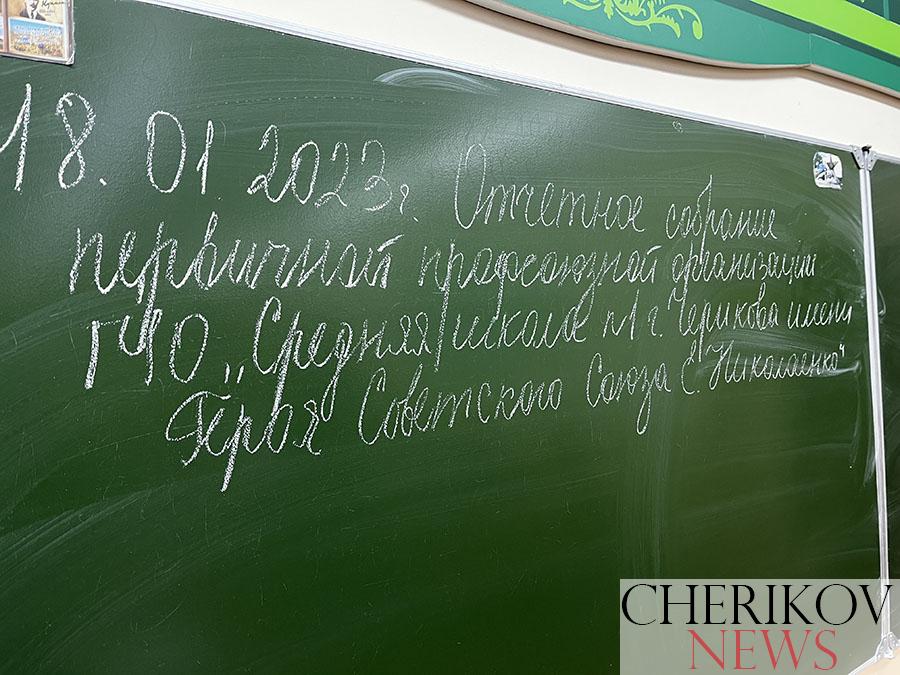 18.01.2023г. Отчетное собрание
первичной профсоюзной организации
ГУО „Средняя школа №1 г. Черикова имени
Героя Советского Союза С. Николаенко“
CHERIKOV
NEWS